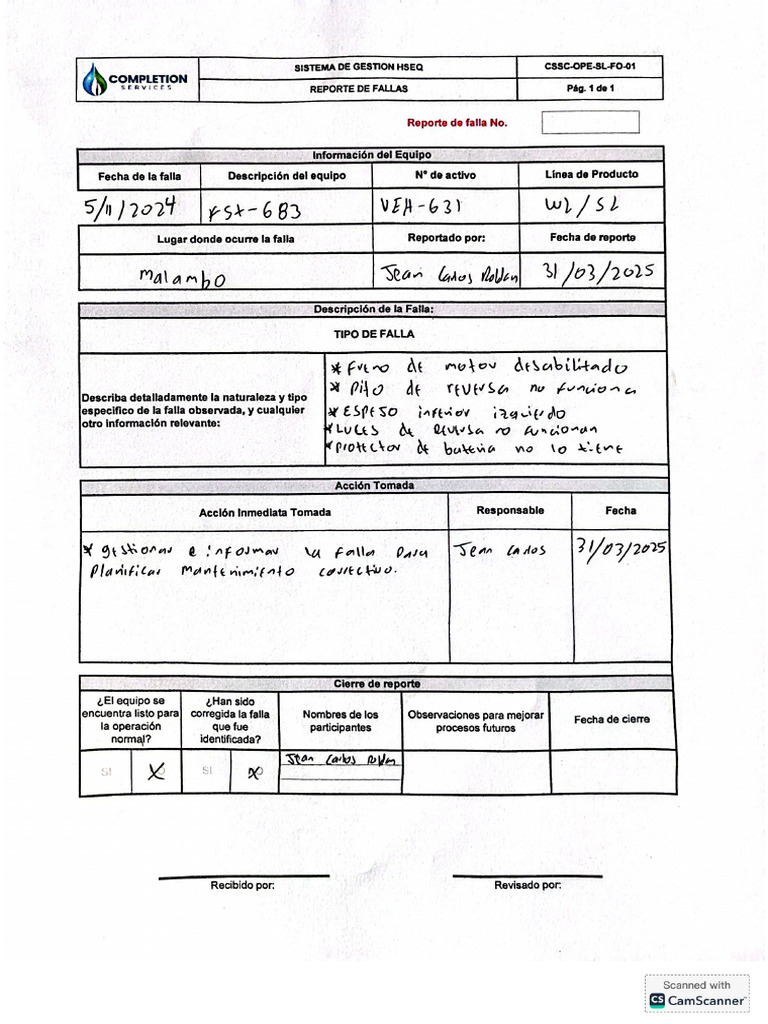 COMPLETION
SERVICES
SISTEMA DE GESTION HSEQ
CSSC-OPE-SL-FO-01
REPORTE DE FALLAS
Pág. 1 de 1
Reporte de falla No.
Información del Equipo
Fecha de la falla Descripción del equipo N° de activo Línea de Producto
5/11/2024 KSX-683 VEH-631 WL/SL
Lugar donde ocurre la falla Reportado por: Fecha de reporte
Malambo Jean Carlos Roldan 31/03/2025
Descripción de la Falla:
TIPO DE FALLA
Describa detalladamente la naturaleza y tipo
especifico de la falla observada, y cualquier
otro información relevante:
* Freno de motor desabilitado
* Pito de reversa no funciona
* ESPEJO inferior izquierdo
* LUCES de Reversa no funcionan
* Protector de bateria no lo tiene
Acción Tomada
Acción Inmediata Tomada Responsable Fecha
* gestionar e informar la falla para Jean Carlos 31/03/2025
Planificar mantenimiento correctivo.
Cierre de reporte
¿El equipo se
encuentra listo para
la operación
normal?
¿Han sido
corregida la falla
que fue
identificada?
Nombres de los
participantes
Observaciones para mejorar
procesos futuros
Fecha de cierre
SI X SI X Jean Carlos Roldan
Recibido por: Revisado por:
Scanned with
CS CamScanner